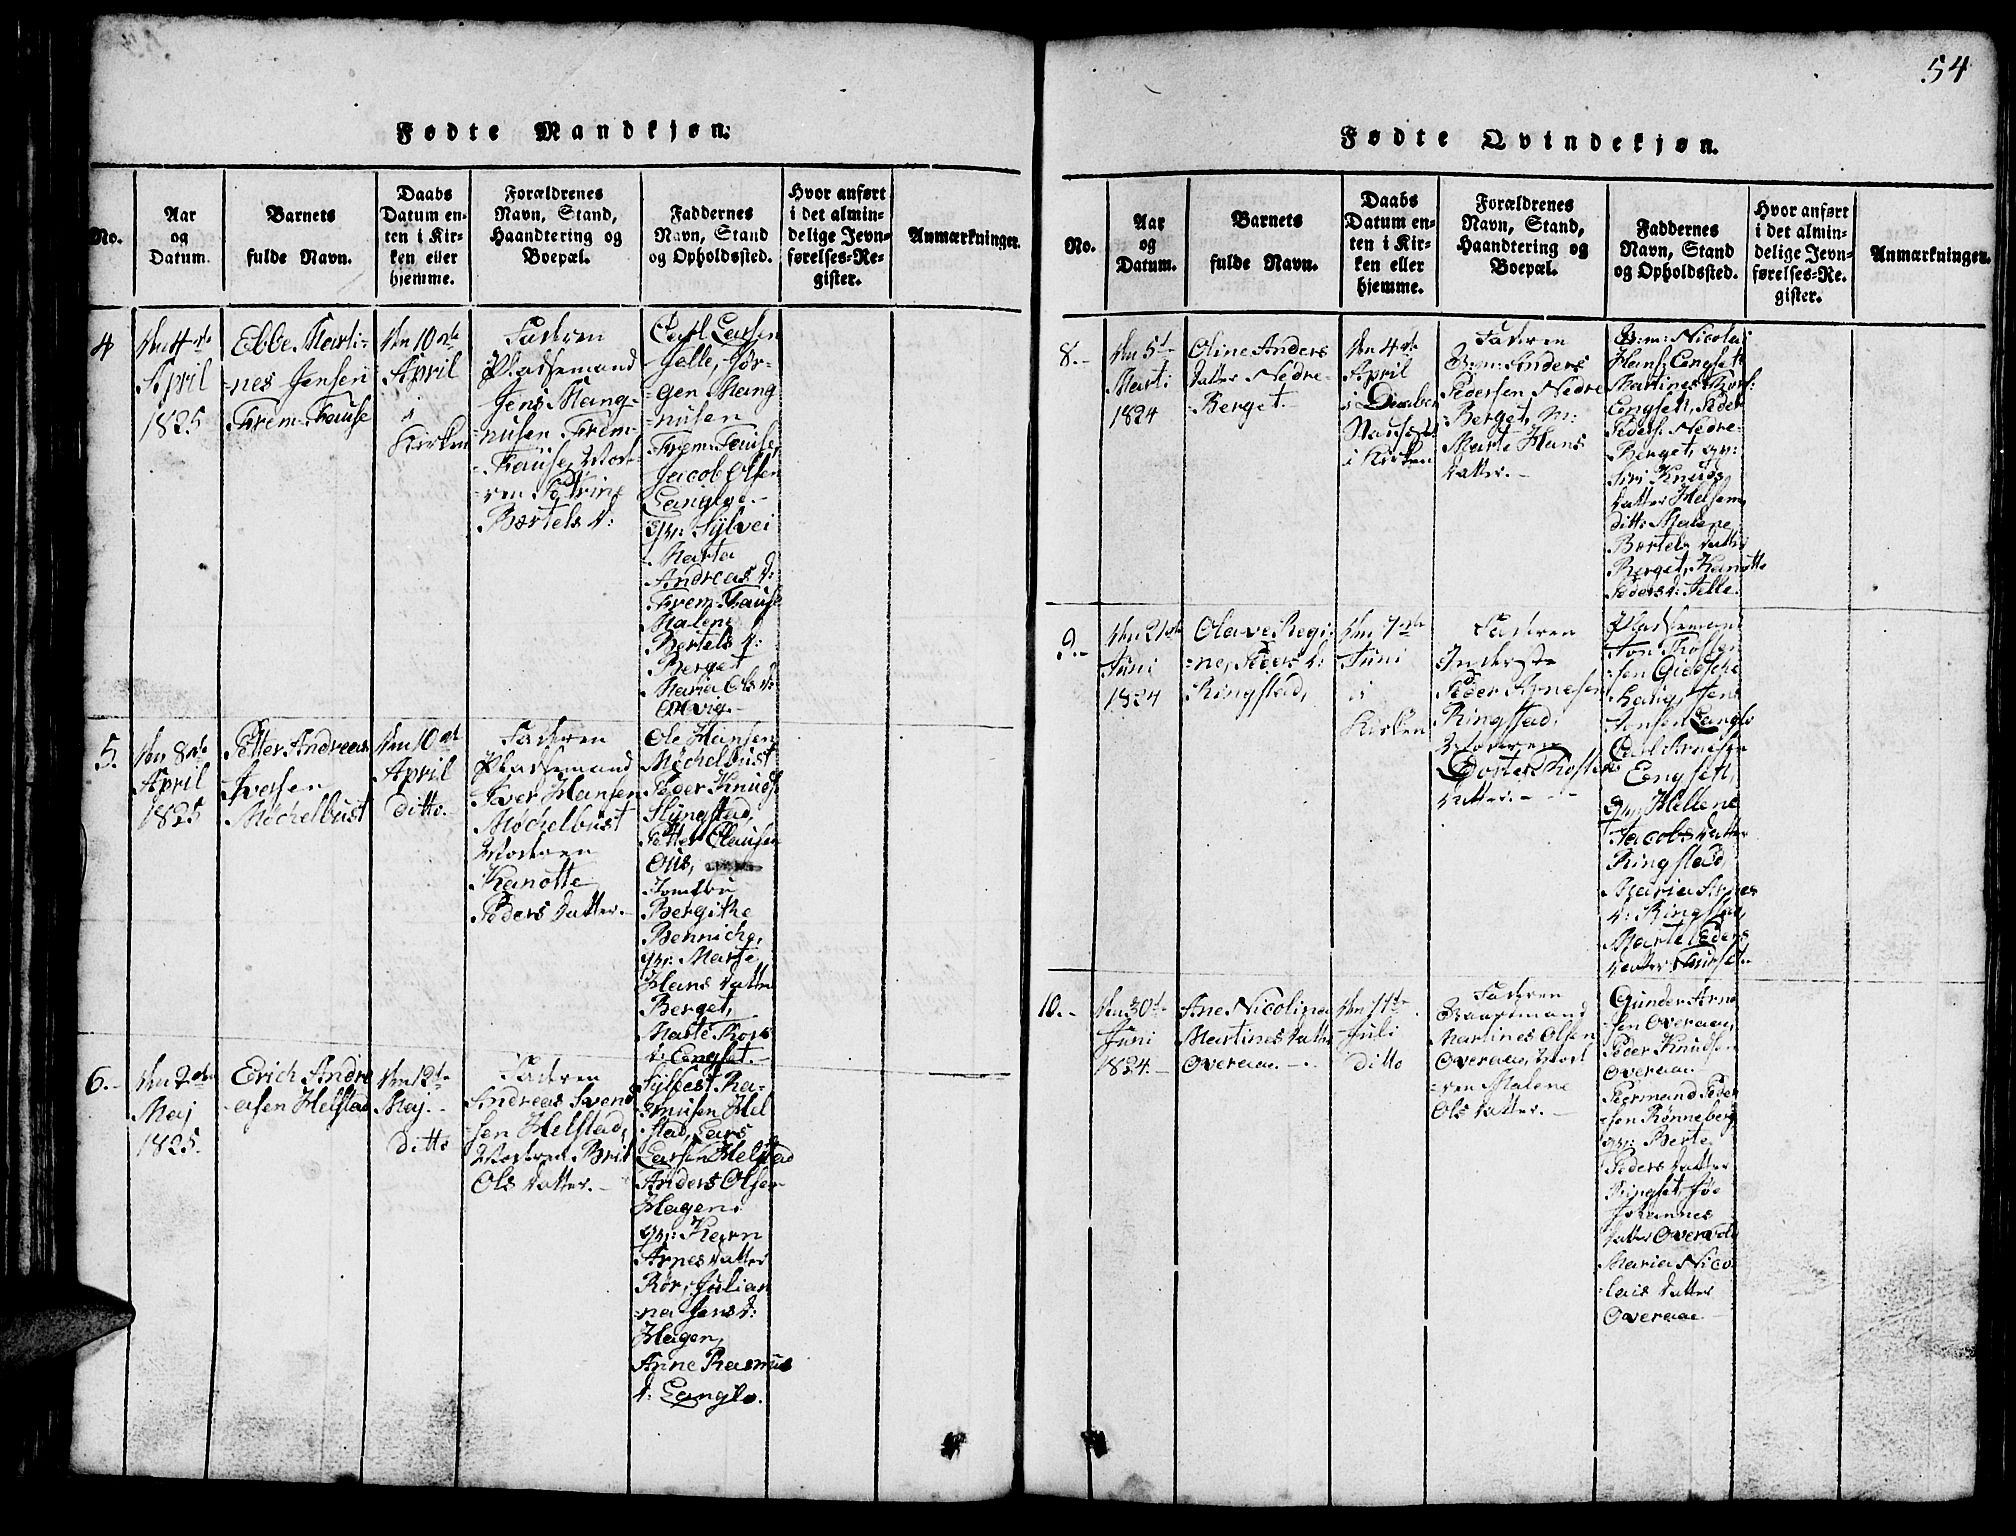 54
Fødte Mandkjøn.
No.
Aar
og
Datum.
Barnets
fulde Navn.
Daabs
Datum en-
ten i Kir-
ken eller
hjemme.
Forældrenes
Navn, Stand,
Haandtering og
Boepæl.
Faddernes
Navn, Stand
og Opholdssted.
Hvor anført
i det almin-
delige Jevn-
førelses-Re-
gister.
Anmærkninger.
4
den 4de
April
1825
Ebbe Marti-
nes Jensen
Frem-Hause
den 10de
April
i
Kirken
Faderen
Pladsemand
Jens Mang-
nusen Frem-
Moderen Petrine
Bertels d:
Carl Larsen
Jelle, Jør-
gen Mang
nusen
Jacob Olsen
Langloe.
Marta
Andreas d:
Malene
Bertels d:
Berget
Maria Ols d:
5.
den 8de
April
1825
Petter Andreas
Iversen
Møchelbust
den 10de
April
ditto.
Faderen
Pladsemand
Iver Hansen
Møchelbust
Moderen
Kanutte
Peders datter.
Ole Hansen
Møchelbust
Peder Knuds
Slyngstad,
Petter Clausen
Jomfru
Bergithe
Benniche,
qv: Marte
Hans datter
Berget,
Marte Thors
d: Længset.
6.
den 2den
Maj
1825.
Erich Andre
asen Helstad
den 12te
Maj.
ditto
Faderen
Andreas Svend
sen Helstad,
Moderen Brit
Ols datter.
Sylfest Ra-
smusen Hel
stad, Lars
Larsen Helstad
Anders Olsen
Hagen:
qv: Karn
Arnes datter
Rør, Julian
na Jens d:
Hagen,
Anne Rasmus
d: Langlo.
Fødte Qvindekjøn.
No.
Aar
og
Datum.
Barnets
fulde Navn.
Daabs
Datum en-
ten i Kir-
ken eller
hjemme.
Forældrenes
Navn, Stand,
Haandtering og
Boepæl.
Faddernes
Navn, Stand
og Opholdssted.
Hvor anført
i det almin-
delige Jevn-
førelses-Re-
gister.
Anmærkninger.
8.
den 5te
Marti
1824
Oline Anders
datter Nedre-
Berget.
den 4de
April
i Kirken
Faderen
B:m: Anders
Pedersen Nedre
Berget, M:
Marte Hans
datter.
B:m: Nicolai
Hans: Længset
Martines Thors:
Længset, Peder
Peders: Nedre-
Berget, qv:
Siri Knuds
datter Helsem
ditto Malene
Bertels datter
Berget, Kanutte
Peders d: Jelle.
9.
den 2den
Juni
1824
Olave Regi
ne, Peders d:
Ringstad,
den 7de
Juni
i
Kirken
Faderen
Inderste
Peder Arnesen
Ringstad,
Moderen
datter.
Pladsemand
Jon Tosten
sen
Jens
Jensen Langlo
Carl Arnesen
Længset,
qv: Hellene
Jacobs datter
Ringstad,
Maria Arnes
d: Ringstad,
Marte Peders
datter
10.
den 30te
Juni
1824.
Ane Nicolina
Martines datter
Overaae.
den 11te
Juli
ditto
Faderen
Gaardmand
Martines Olsen
Overaae, Mod
ren Malene
Ols datter.
Gunder Arne
sen Overaae,
Peder Knudsen
Overaae.
Peermand Peder
sen Rønneberg
qv: Berte
Peders datter
Ringset,
Johannes
datter Overvold
Maria Nico
lais datter
Overaae